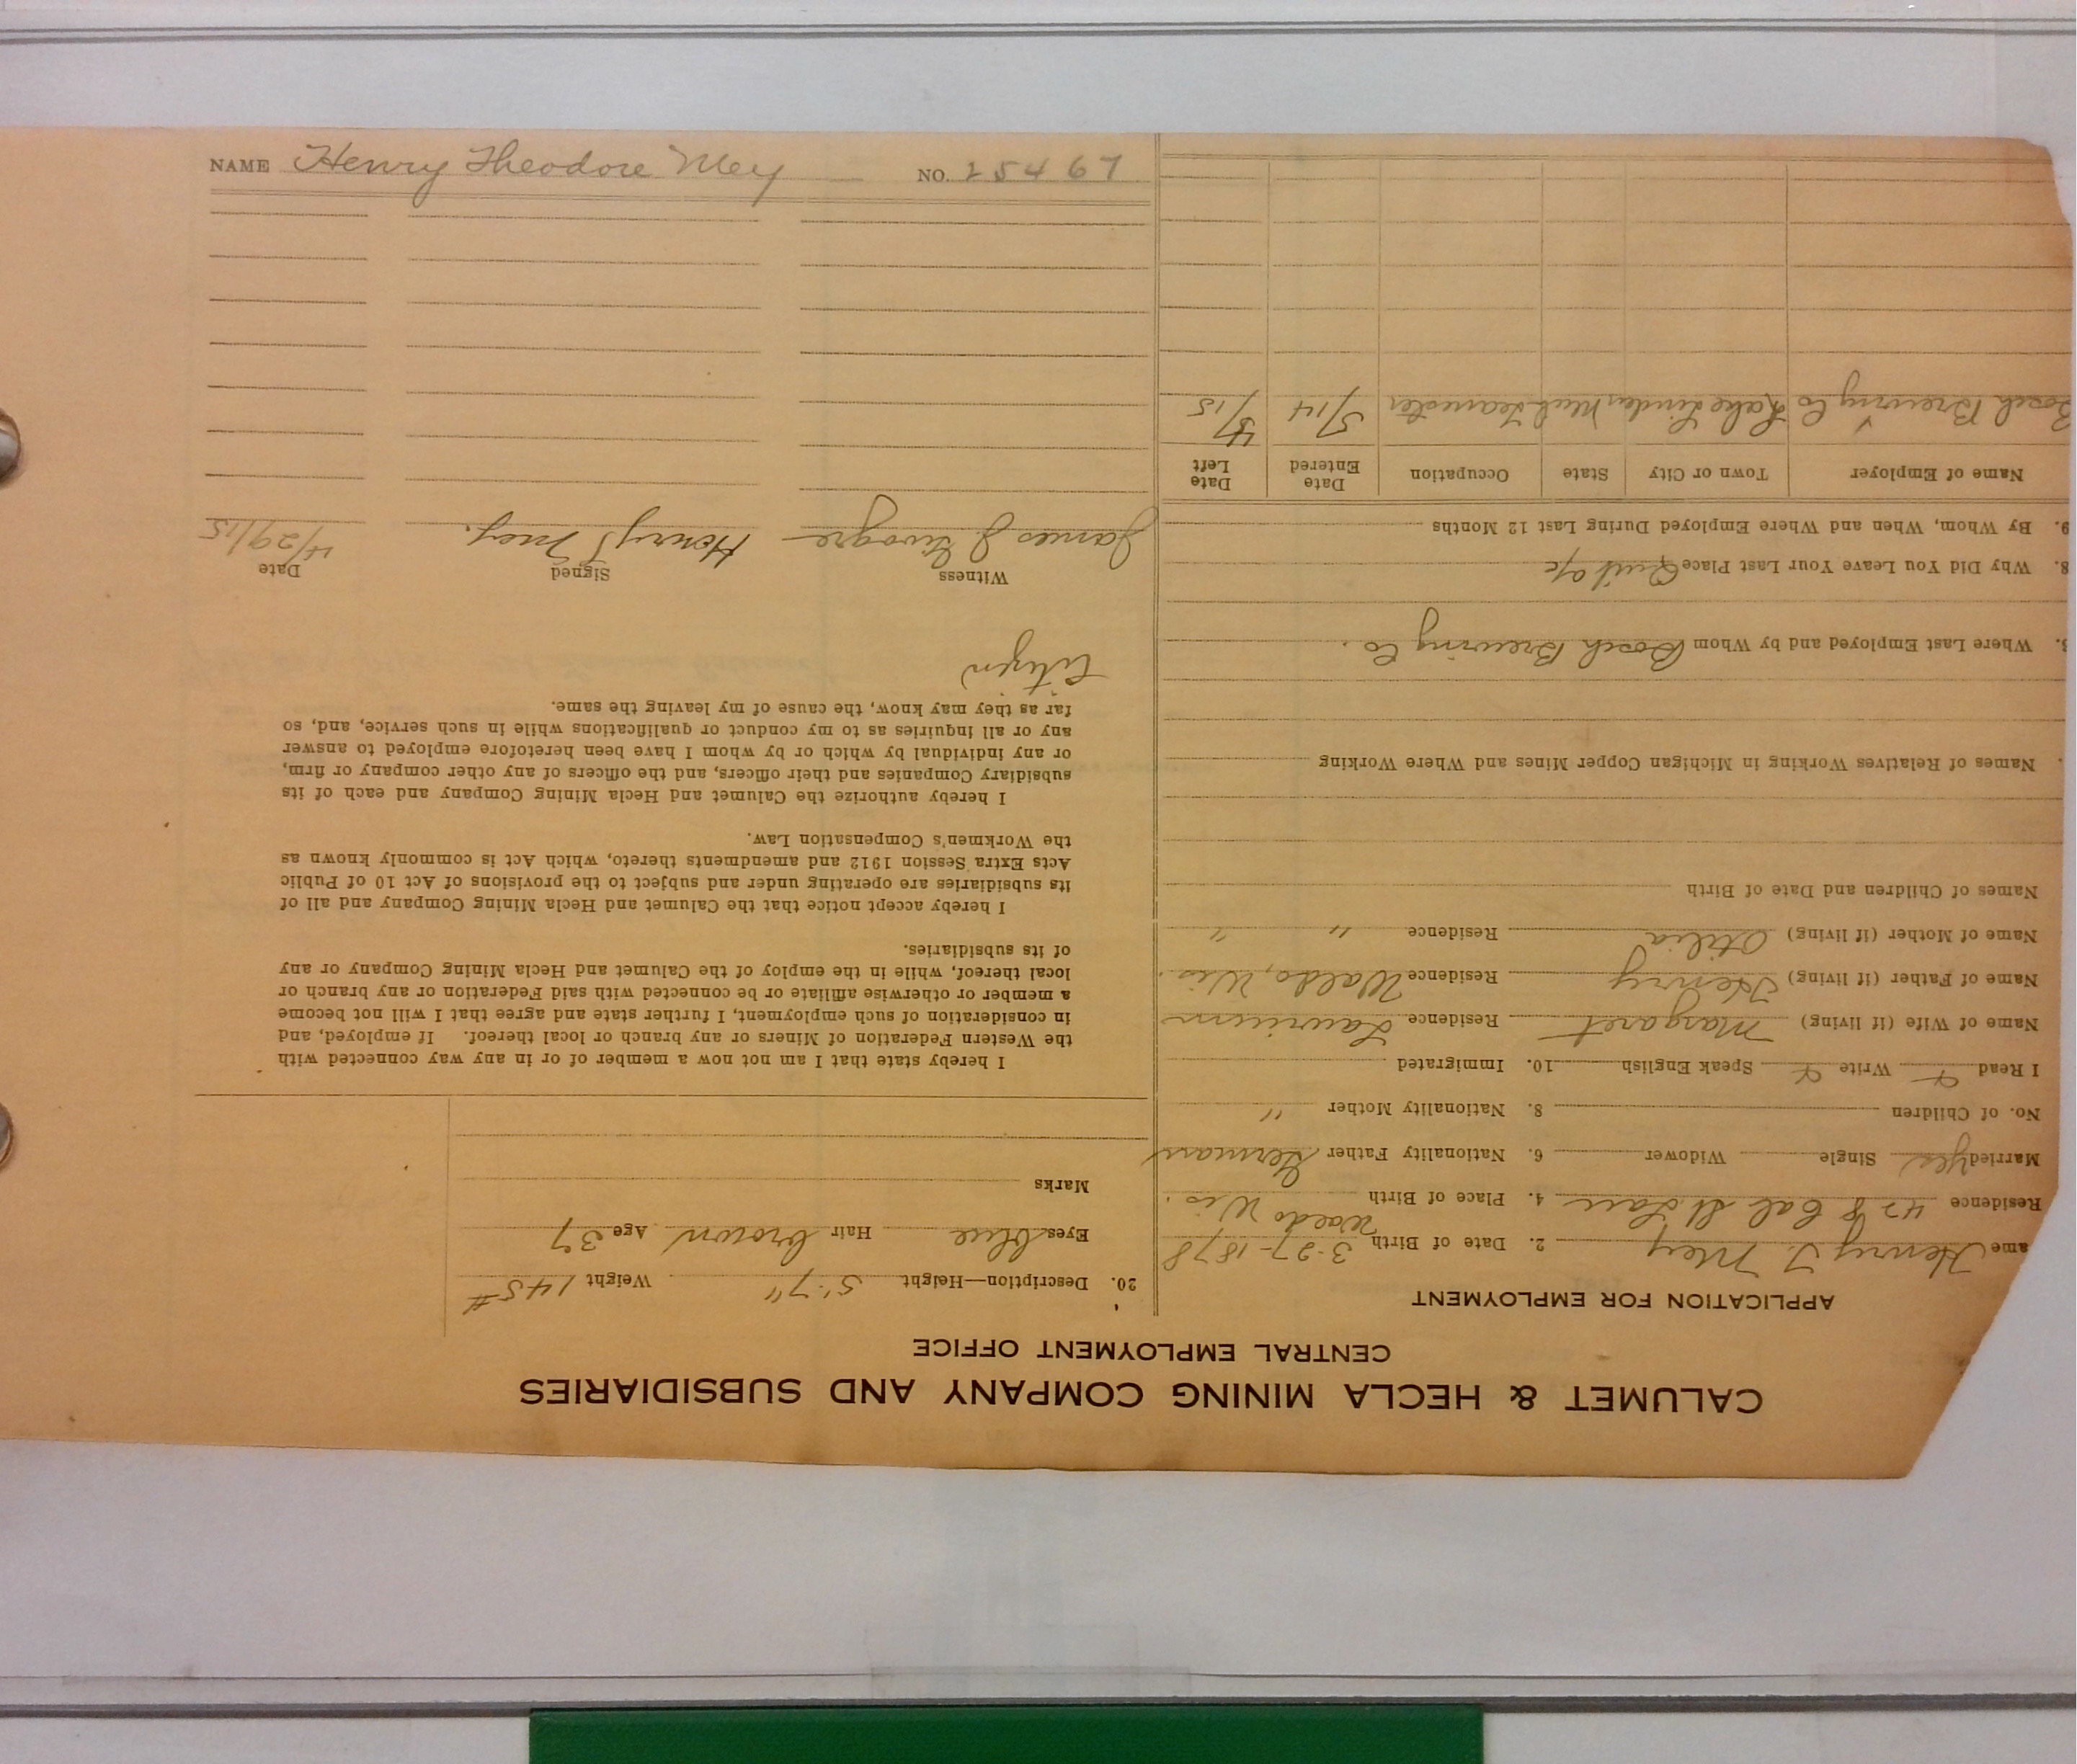 NAME Henry Theodore Mey NO. 25467
CALUMET & HECLA MINING COMPANY AND SUBSIDIARIES
CENTRAL EMPLOYMENT OFFICE
APPLICATION FOR EMPLOYMENT
ame Henry T. Mey 2. Date of Birth 3-27-1878
Residence 428 Cal St Laur 4. Place of Birth Waldo Wis.
Married Yes Single Widower 6. Nationality Father German
No. of Children 8. Nationality Mother "
I Read Write Speak English 10. Immigrated
Name of Wife (if living) Margaret Residence Laurium
Name of Father (if living) Henry Residence Waldo, Wis.
Name of Mother (if living) Otilia Residence " "
Names of Children and Date of Birth
. Names of Relatives Working in Michigan Copper Mines and Where Working
Where Last Employed and by Whom Bosch Brewing Co.
8. Why Did You Leave Your Last Place Quit a/c
9. By Whom, When and Where Employed During Last 12 Months
Name of Employer Town or City State Occupation Date Entered Date Left
Bosch Brewing Co Lake Linden Mich Teamster 5/14 4/15
20. Description—Height 5'.7" Weight 145#
Eyes blue Hair brown Age 37
Marks
I hereby state that I am not now a member of or in any way connected with
the Western Federation of Miners or any branch or local thereof. If employed, and
in consideration of such employment, I further state and agree that I will not become
a member or otherwise affiliate or be connected with said Federation or any branch or
local thereof, while in the employ of the Calumet and Hecla Mining Company or any
of its subsidiaries.
I hereby accept notice that the Calumet and Hecla Mining Company and all of
its subsidiaries are operating under and subject to the provisions of Act 10 of Public
Acts Extra Session 1912 and amendments thereto, which Act is commonly known as
the Workmen's Compensation Law.
I hereby authorize the Calumet and Hecla Mining Company and each of its
subsidiary Companies and their officers, and the officers of any other company or firm,
or any individual by which or by whom I have been heretofore employed to answer
any or all inquiries as to my conduct or qualifications while in such service, and, so
far as they may know, the cause of my leaving the same.
Citizen
Witness Signed Date
James J Henry T Mey. 4/29/15